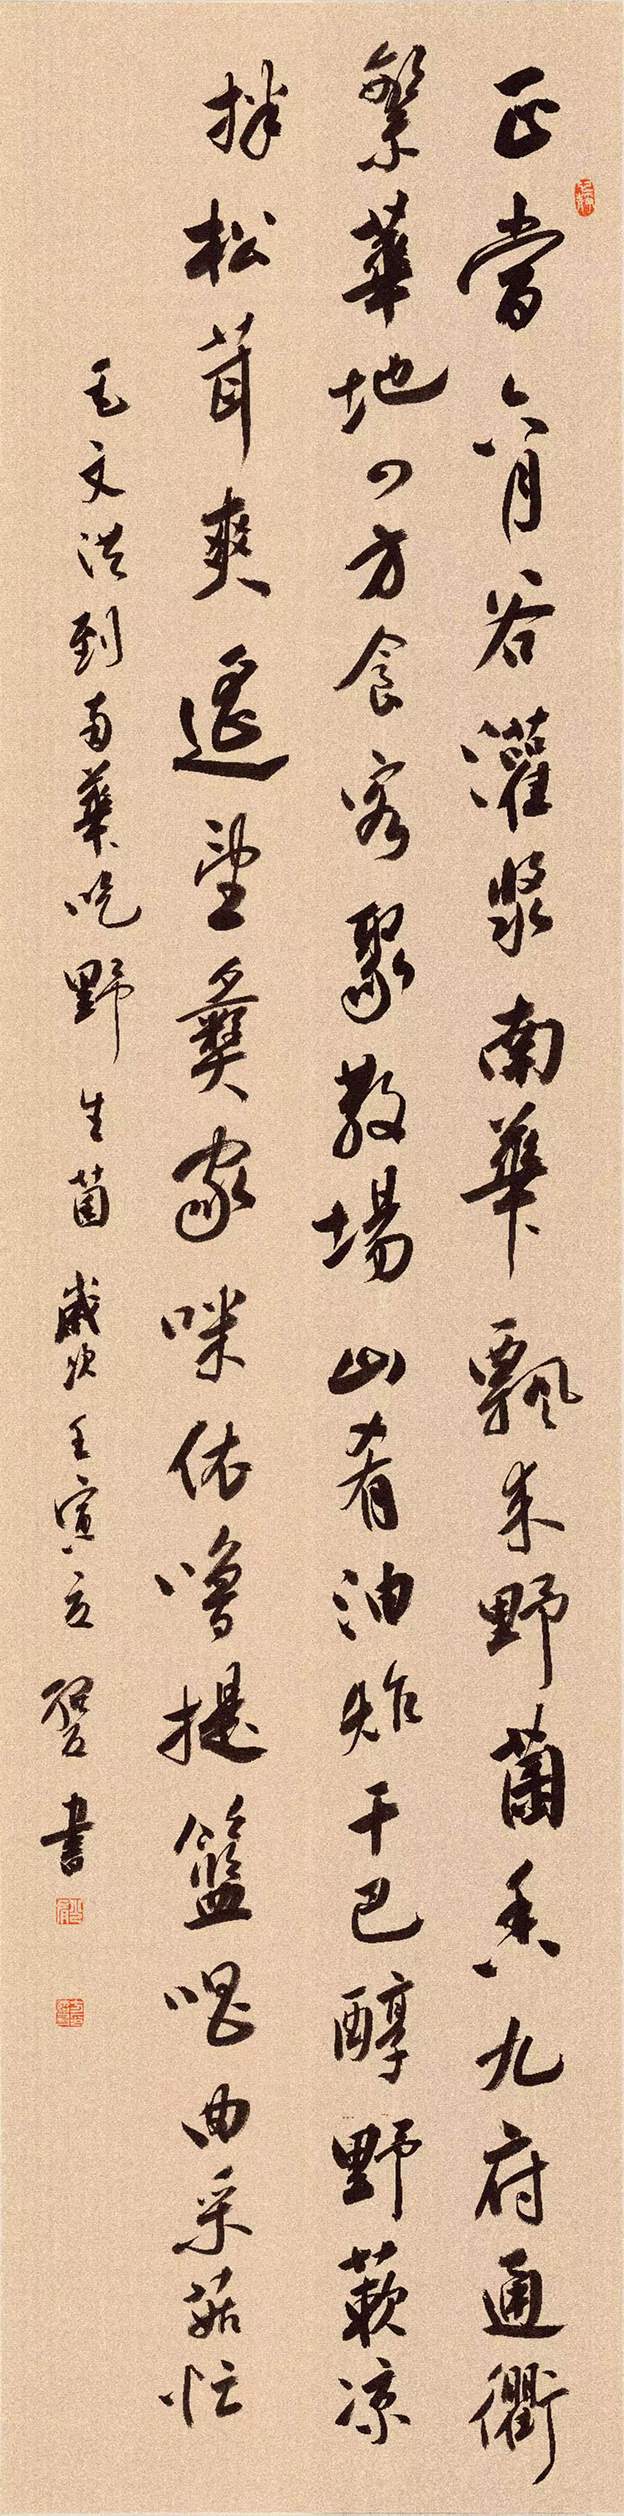 正當六月谷灌漿南華飄來野菌香九府通衢
繁華地四方食客聚教場山肴油炸干巴醇野蔌凉
拌松茸爽遥望彝家咪依嚕提籃唱曲采菇忙
毛文洪到南華吃野生菌歲次壬寅立書